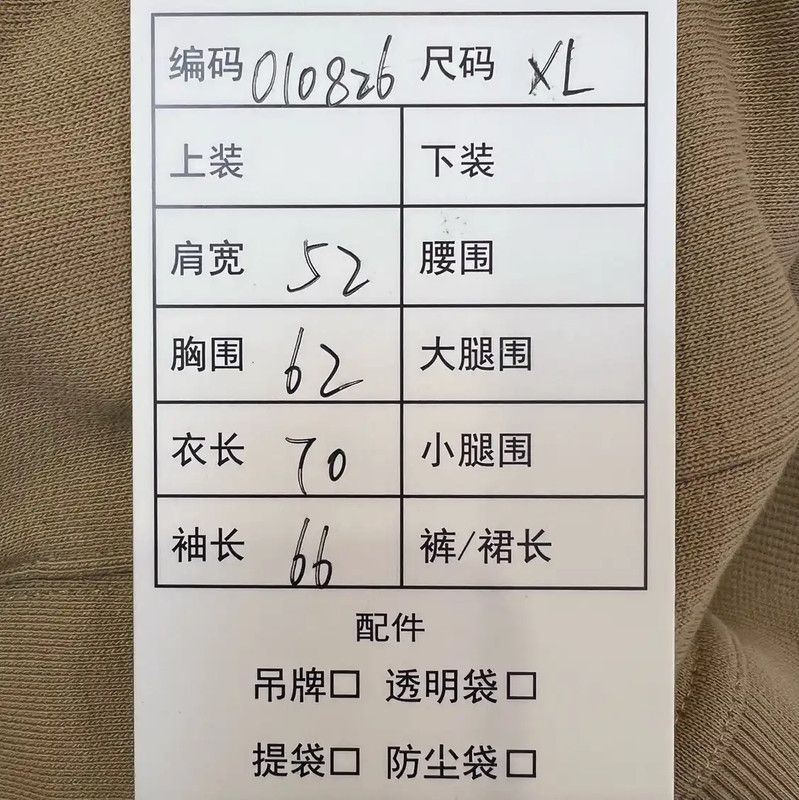 编码 010826 尺码 XL
上装 下装
肩宽 52 腰围
胸围 62 大腿围
衣长 70 小腿围
袖长 66 裤/裙长
配件
吊牌□ 透明袋□
提袋□ 防尘袋□